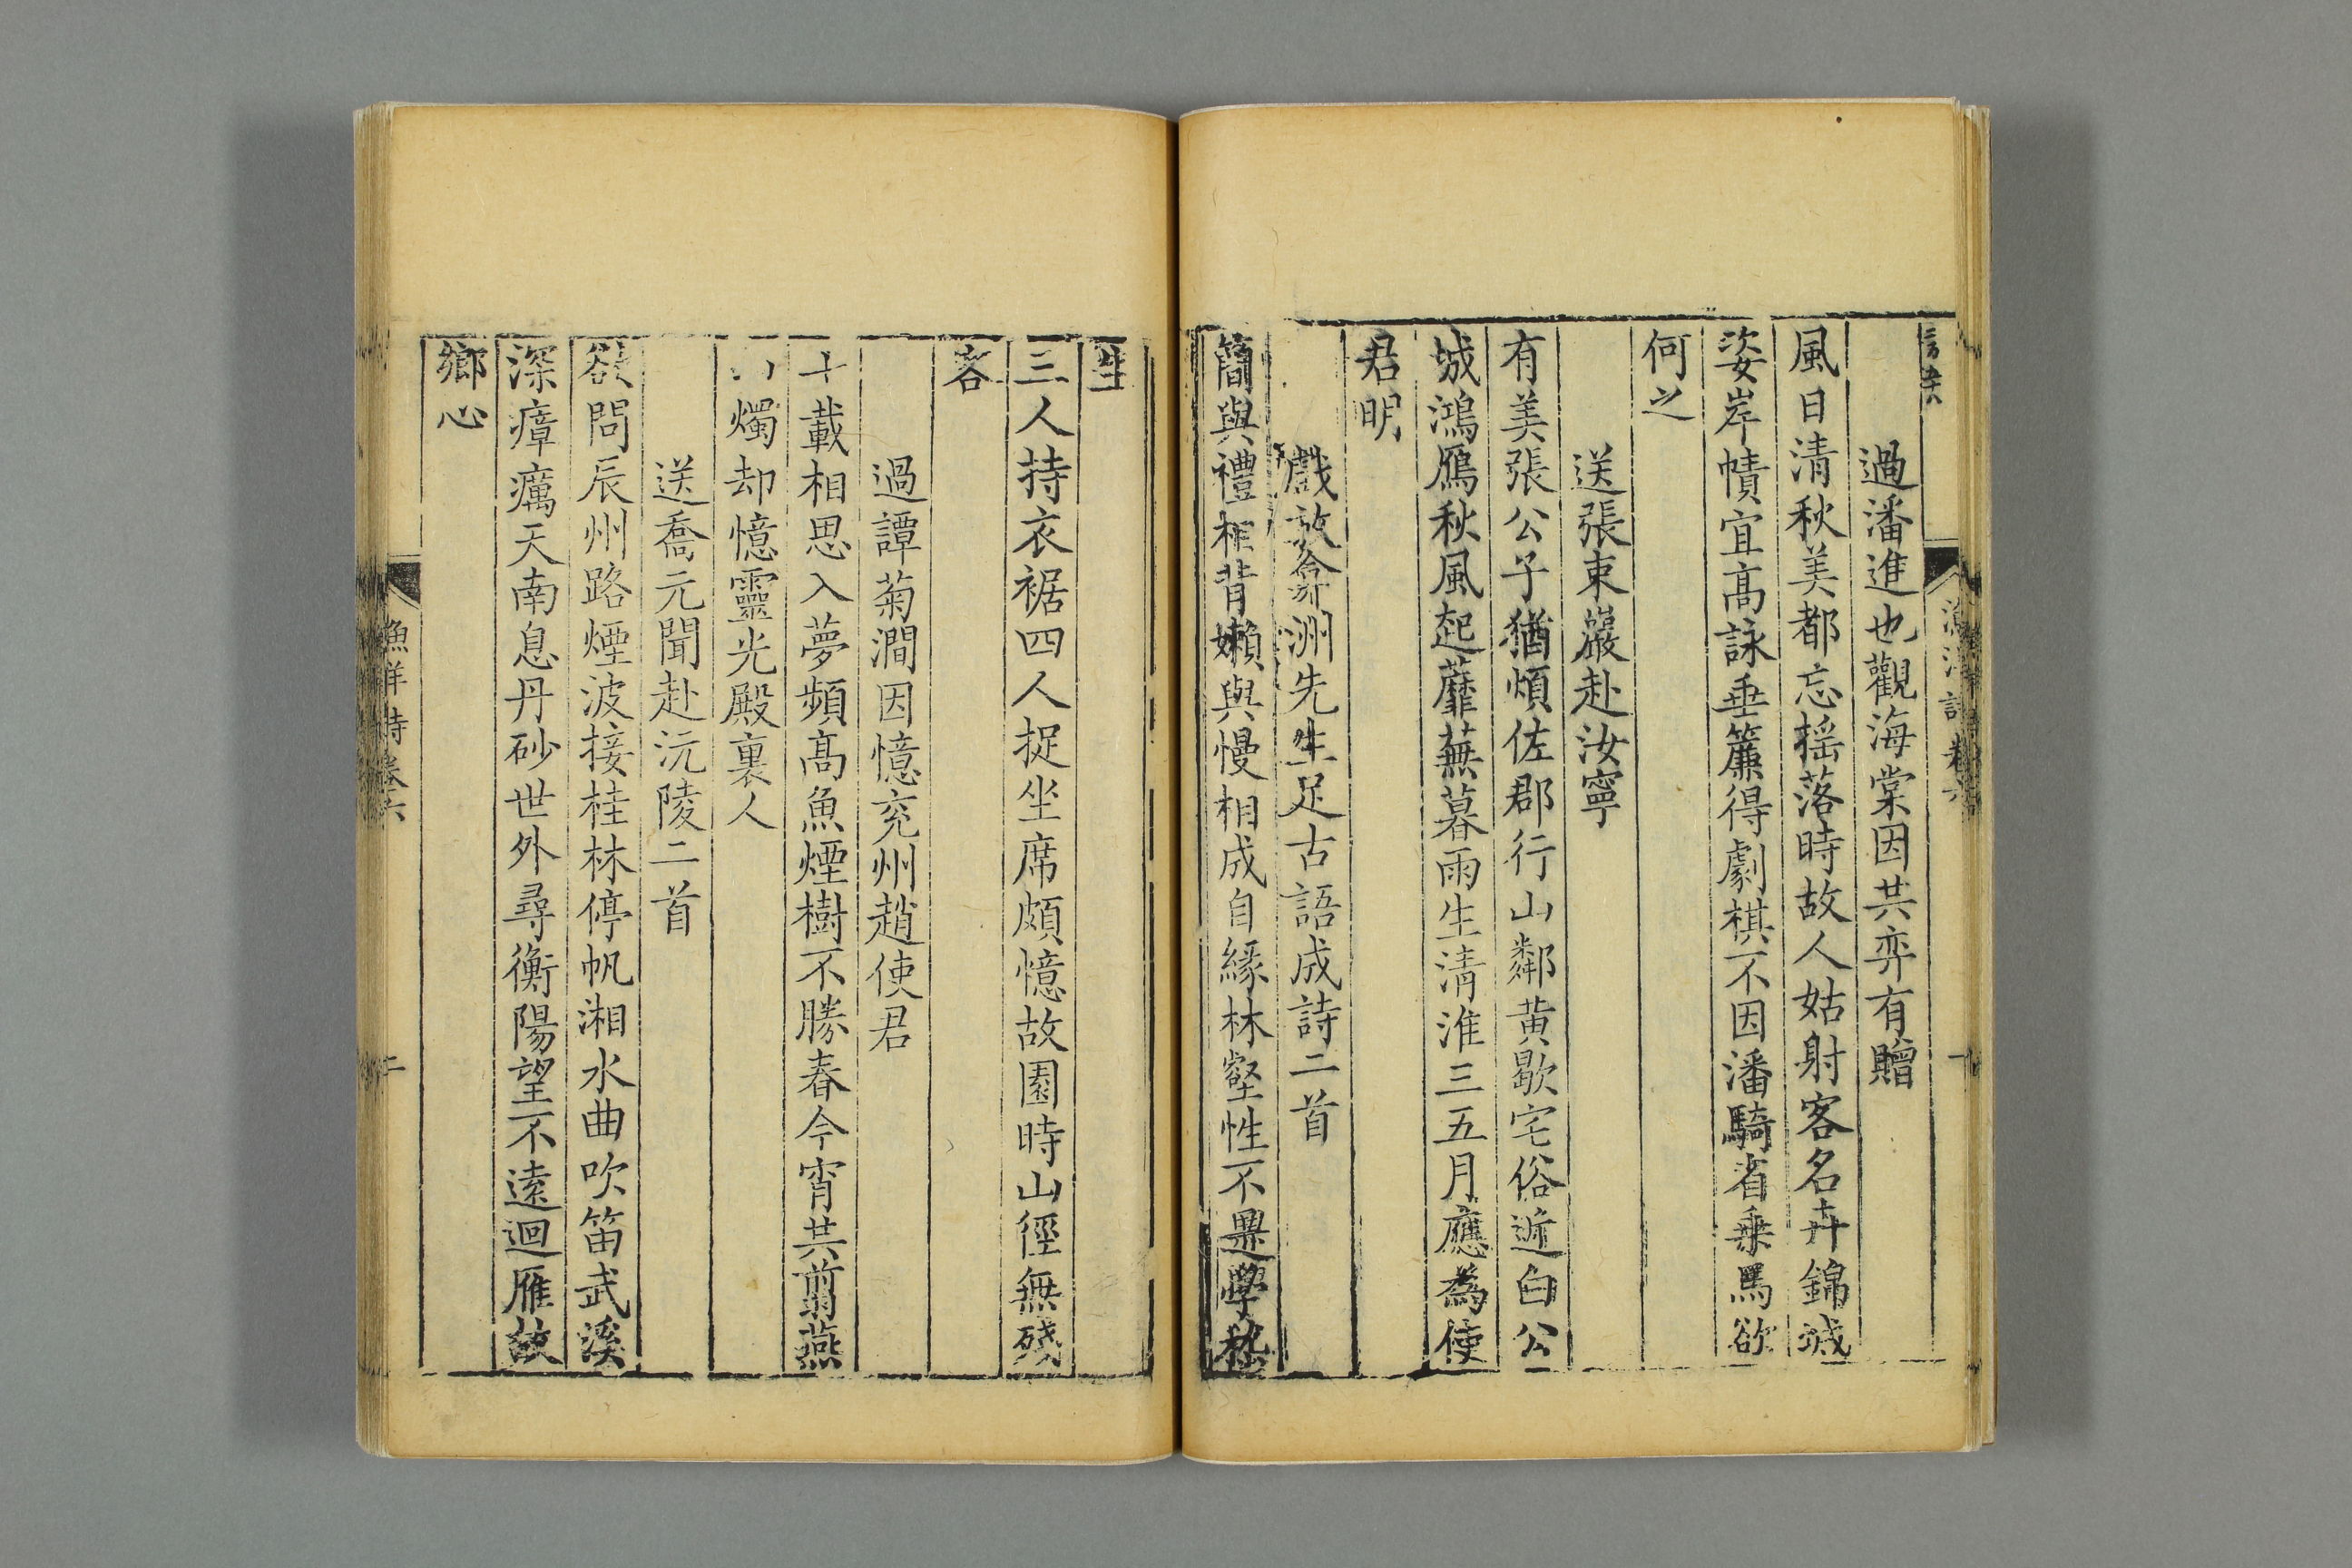 過潘進也觀海棠因共弈有贈
風日清秋美都忘揺落時故人姑射客名卉錦城
姿岸幘宜高詠垂簾得劇棋不因潘騎省乗馬欲
何之
送張東巖赴汝寧
有美張公子猶煩佐郡行山鄰黄歇宅俗近白公
城鴻鴈秋風起蘼蕪暮雨生清淮三五月應為使
君明
戲效弇州先生足古語成詩二首
簡與禮相背嬾與慢相成自緣林壑性不異學嵇
生
三人持衣裾四人捉坐席頗憶故園時山徑無殘
客
過譚菊澗因憶兖州趙使君
十載相思入夢頻高魚煙樹不勝春今宵共翦燕
燭却憶靈光殿裏人
送喬元聞赴沅陵二首
欲問辰州路煙波接桂林停帆湘水曲吹笛武溪
深瘴癘天南息丹砂世外尋衡陽望不遠迴雁故
鄉心
漁洋詩卷六
二